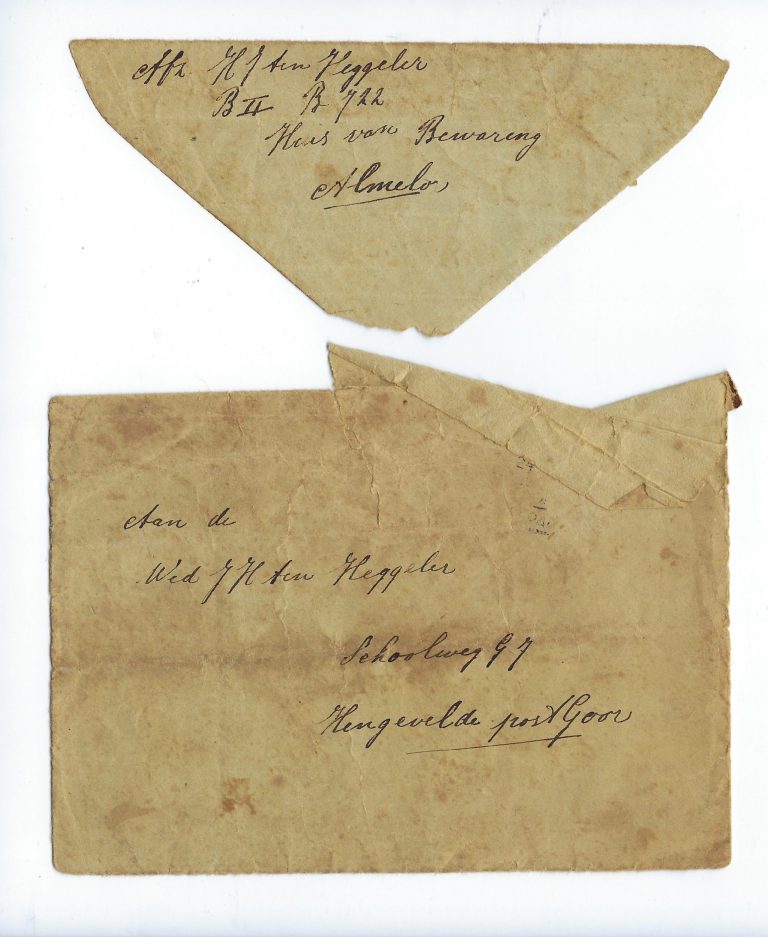 Afz. H J ten Heggeler
B II B 722
Huis van Bewaring
Almelo
Aan de
Wed J H ten Heggeler
Schoolweg G 7
Hengevelde post Goor